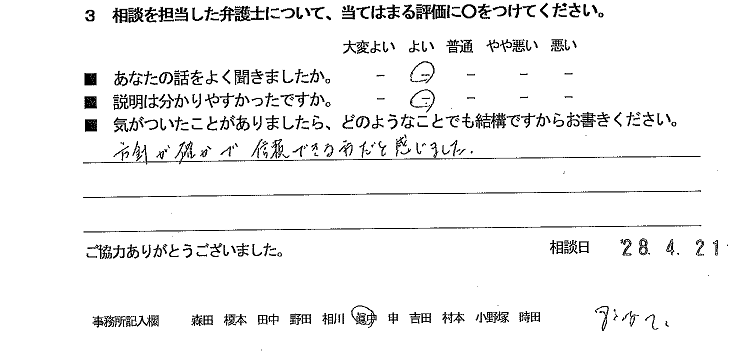 3 相談を担当した弁護士について、当てはまる評価に〇をつけてください。
大変よい よい 普通 やや悪い 悪い
■ あなたの話をよく聞きましたか。 － － － － －
■ 説明は分かりやすかったですか。 － － － － －
■ 気がついたことがありましたら、どのようなことでも結構ですからお書きください。
方針が確かで 信頼できる方だと感じました.
ご協力ありがとうございました。 相談日 '28.4.21
事務所記入欄 森田 榎本 田中 野田 相川 眞中 申 吉田 村本 小野塚 時田